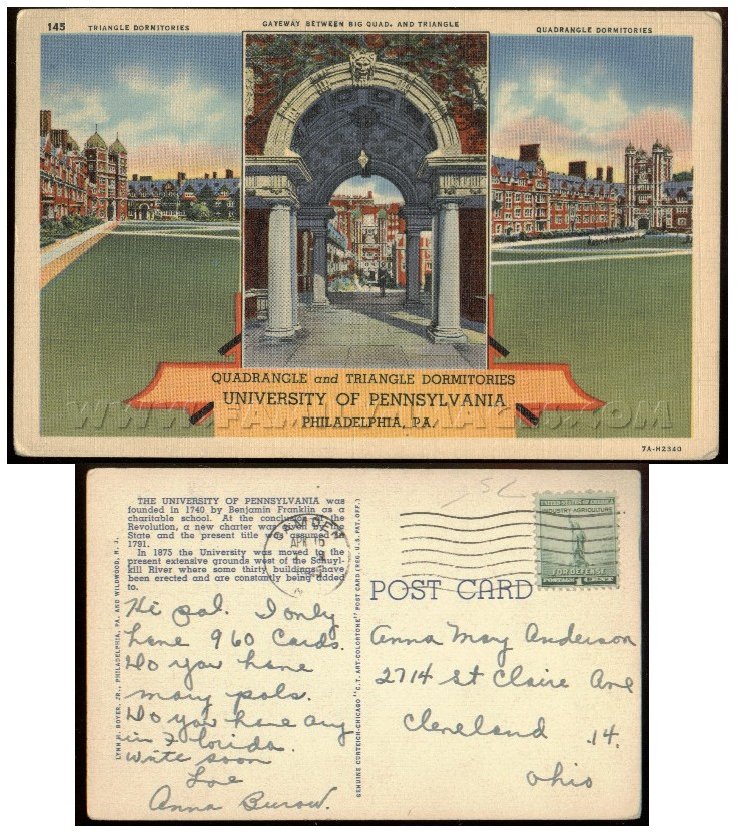 145 TRIANGLE DORMITORIES
GATEWAY BETWEEN BIG QUAD. AND TRIANGLE
QUADRANGLE DORMITORIES
QUADRANGLE and TRIANGLE DORMITORIES
UNIVERSITY OF PENNSYLVANIA
PHILADELPHIA, PA.
7A-H2340
THE UNIVERSITY OF PENNSYLVANIA was
founded in 1740 by Benjamin Franklin as a
charitable school. At the conclusion of the
Revolution, a new charter was given by the
State and the present title was assumed in
1791.
In 1875 the University was moved to the
present extensive grounds west of the Schuyl-
kill River where some thirty buildings have
been erected and are constantly being added
to.
Hi pal. I only
have 960 Cards.
Do you have
many pals.
Do you have any
in Florida.
write soon
Love
Anna Burow.
LYNN H. BOYER, JR., PHILADELPHIA, PA. AND WILDWOOD, N. J.
GENUINE CURTEICH-CHICAGO "C.T. ART-COLORTONE" POST CARD (REG. U.S. PAT. OFF.)
APR 16
INDUSTRY AGRICULTURE
FOR DEFENSE
POSTAGE 1 CENT
POST CARD
Anna May Anderson
2714 St Claire Ave
Cleveland 14.
Ohio